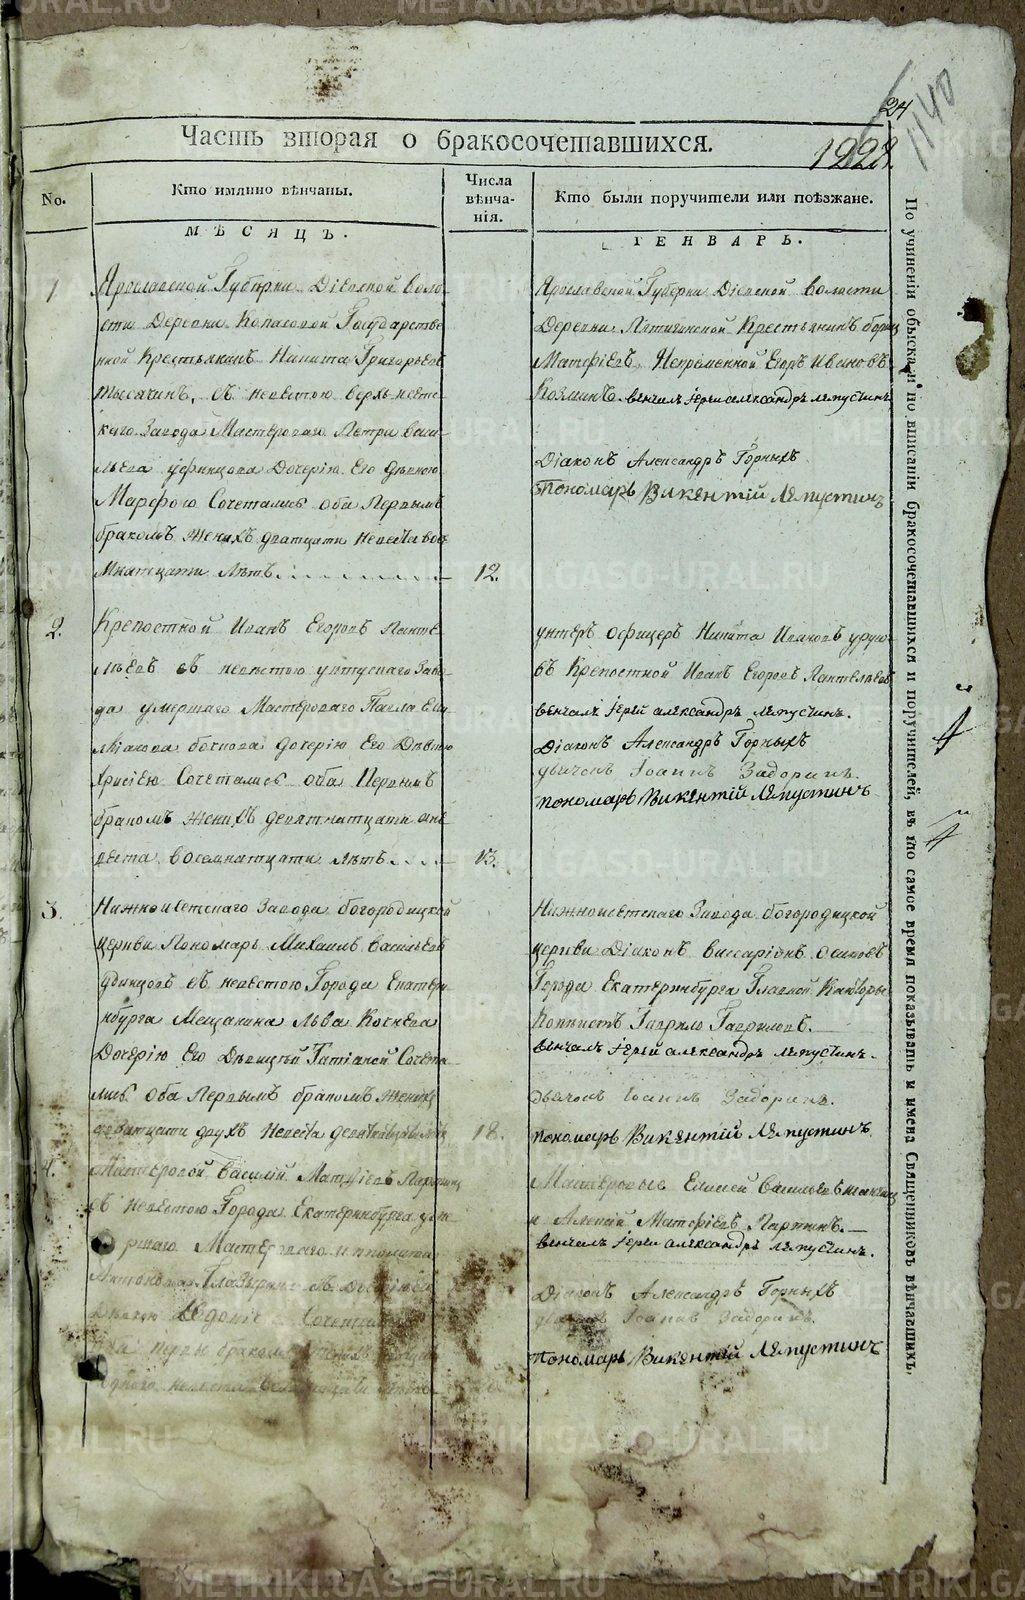 24
1140
Часть вторая о бракосочетавшихся.
1828.
No.
Кто имянно вѣнчаны.
Числа
вѣнча-
нія.
Кто были поручители или поѣзжане.
МѢСЯЦЪ.
ГЕНВАРЬ.
1
Ярославской Губерни Діевской Воло
сти Деревни Государстве
нной Крестьянинъ Никита Григорьевъ
Тысячинъ, съ невестою Верхъ-исетс
каго Завода Мастероваго Петра Васи-
льева Дочерію Его Девкою
Марфою Сочетались оба Первымъ
бракомъ Женихъ дватцати Невеста вось
мнатцати Летъ
12.
Ярославской Губерни Діевской Волости
Деревни Крестьянинъ
Матфіевъ, Егоръ Ивановъ
венчалъ іерей александръ ляпустинъ
Діаконъ Александръ Горныхъ
Пономарь Викентій Ляпустинъ
2.
Крепостной Иванъ Егоровъ Панте
льевъ съ невестою уктускаго Заво
да умершаго Мастероваго Павла Ем
ліанова дочерію Его Девкою
Сочетались оба Первымъ
бракомъ женихъ девятнатцати а не
веста восемнатцати летъ
13.
унтеръ офицеръ Никита Ивановъ
Крепостной Иванъ Егоровъ Пантельевъ
венчалъ іерей александръ ляпустинъ.
Діаконъ Александръ Горныхъ
дьячокъ Іоаннъ Задоринъ.
пономарь Викентій Ляпустинъ
3.
Нижноисетскаго Завода богородицкой
церкви Пономарь Михаилъ Васильевъ
Удинцовъ съ невестою Города Екатери
нбурга Мещанина Льва Кочнева
Дочерію Его Девицей Татіаной Сочета
лись оба Первымъ бракомъ женихъ
дватцати двухъ Невеста
18.
Нижноисетскаго Завода богородицкой
церкви Діаконъ Виссаріонъ Осиповъ
Города Екатеринбурга Главной Канторы
Копеистъ Гаврило Гавриловъ.
венчалъ іерей александръ ляпустинъ.
дьячокъ Іоаннъ Задоринъ.
пономарь Викентій Ляпустинъ.
4.
Мастеровой Василій Матфіевъ
съ невестою Города Екатеринбурга уме
ршаго Мастероваго
Антонова
Сочетались
оба бракомъ женихъ
одного невеста
Мастеровые Елисей Васильевъ
и Алексій Матфіевъ Ларкинъ.
венчалъ іерей александръ ляпустинъ.
Діаконъ Александръ Горныхъ
дьячокъ Іоаннъ Задоринъ.
Пономарь Викентій Ляпустинъ
По учиненіи обыска и по вписаніи бракосочетавшихся и поручителей, въ то самое время показывать и имена Священниковъ вѣнчавшихъ.
METRIKI.GASO-URAL.RU